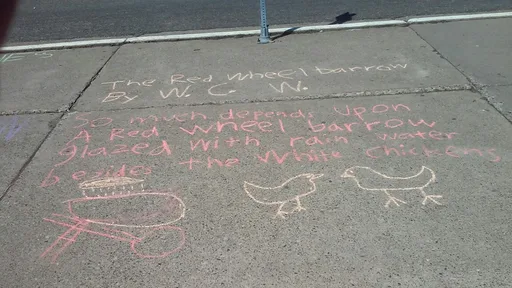 The Red Wheel barrow
By W. C. W.
So much depends upon
A Red wheel barrow
glazed with rain water
besides the White chickens